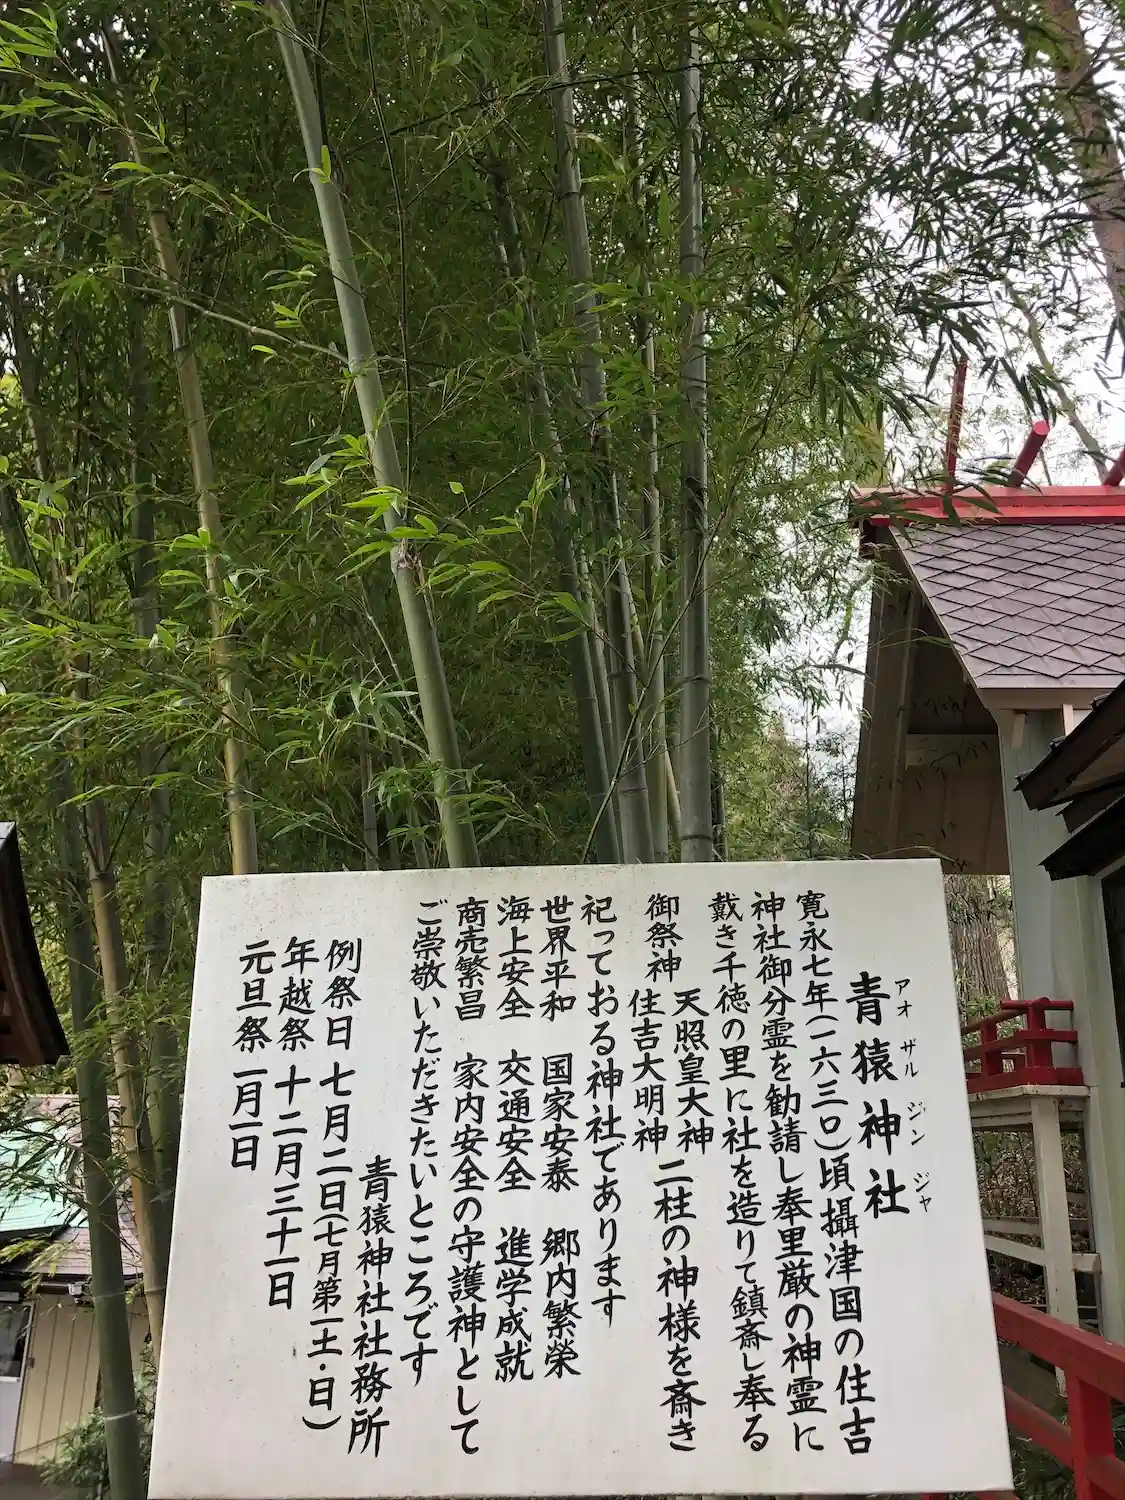 青猿神社
アオザルジンジャ
寛永七年(一六三〇)頃攝津国の住吉
神社御分霊を勧請し奉里厳の神霊に
戴き千徳の里に社を造りて鎮斎し奉る
御祭神 天照皇大神
住吉大明神 二柱の神様を斎き
祀っておる神社であります
世界平和 国家安泰 郷内繁榮
海上安全 交通安全 進学成就
商売繁昌 家内安全の守護神として
ご崇敬いただきたいところです
青猿神社社務所
例祭日 七月二日(七月第一土・日)
年越祭 十二月三十一日
元旦祭 一月一日